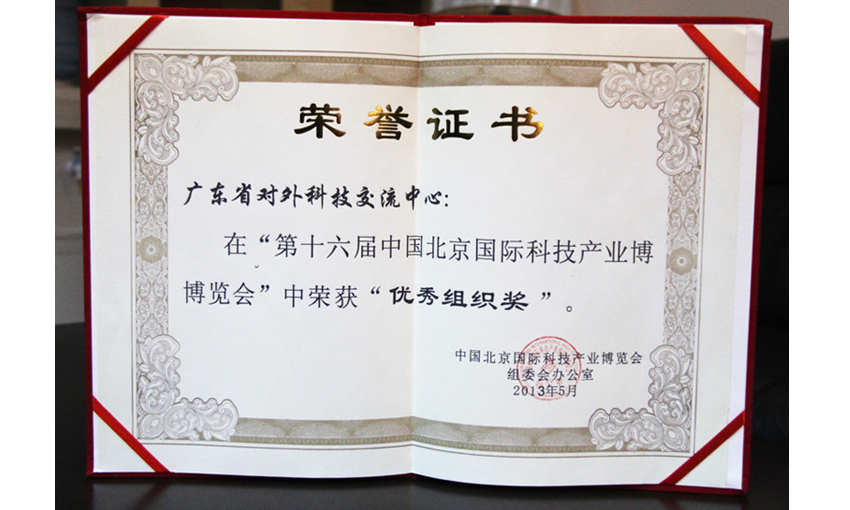 荣誉证书
广东省对外科技交流中心:
在“第十六届中国北京国际科技产业博
博览会”中荣获“优秀组织奖”。
中国北京国际科技产业博览会
组委会办公室
2013年5月